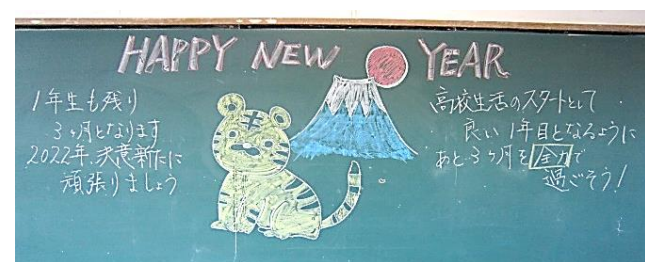 HAPPY NEW YEAR
1年生も残り
3ヶ月となります
2022年、決意新たに
頑張りましょう
高校生活のスタートとして
良い1年目となるように
あと3ヶ月を全力で
過ごそう!